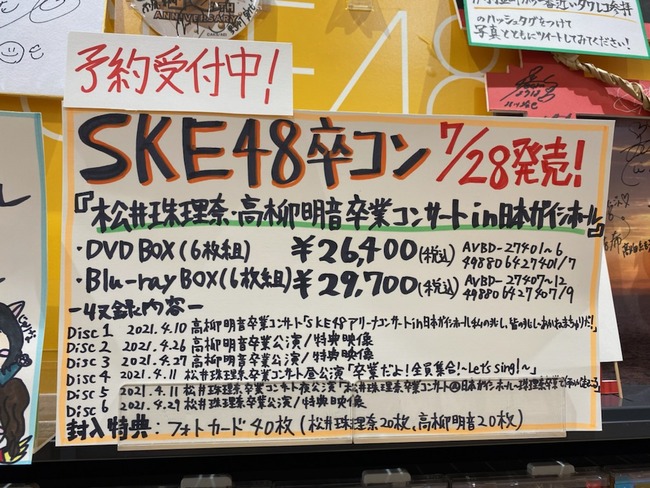 ANNIVERSARY
のハッシュタグをつけて
写真とともにツイートしてみてください!
予約受付中!
SKE48卒コン 7/28発売!
『松井珠理奈・高柳明音卒業コンサートin日本ガイシホール』
・DVD BOX(6枚組) ¥26,400(税込) AVBD-27401~6
4988064274017/7
・Blu-ray BOX(6枚組) ¥29,700(税込) AVBD-27407~12
498806427407/9
-収録内容-
Disc 1 2021.4.10 高柳明音卒業コンサート「SKE48アリーナコンサートin日本ガイシホール
Disc 2 2021.4.26 高柳明音卒業公演/特典映像
Disc 3 2021.4.27 高柳明音卒業公演/特典映像
Disc 4 2021.4.11 松井珠理奈卒業コンサート昼公演「卒業だよ!全員集合!~Let's sing!~」
Disc 5 2021.4.11 松井珠理奈卒業コンサート夜公演「松井珠理奈卒業コンサート@日本ガイシホール~珠理奈卒業で
Disc 6 2021.4.29 松井珠理奈卒業公演/特典映像
封入特典:フォトカード40枚(松井珠理奈20枚、高柳明音20枚)